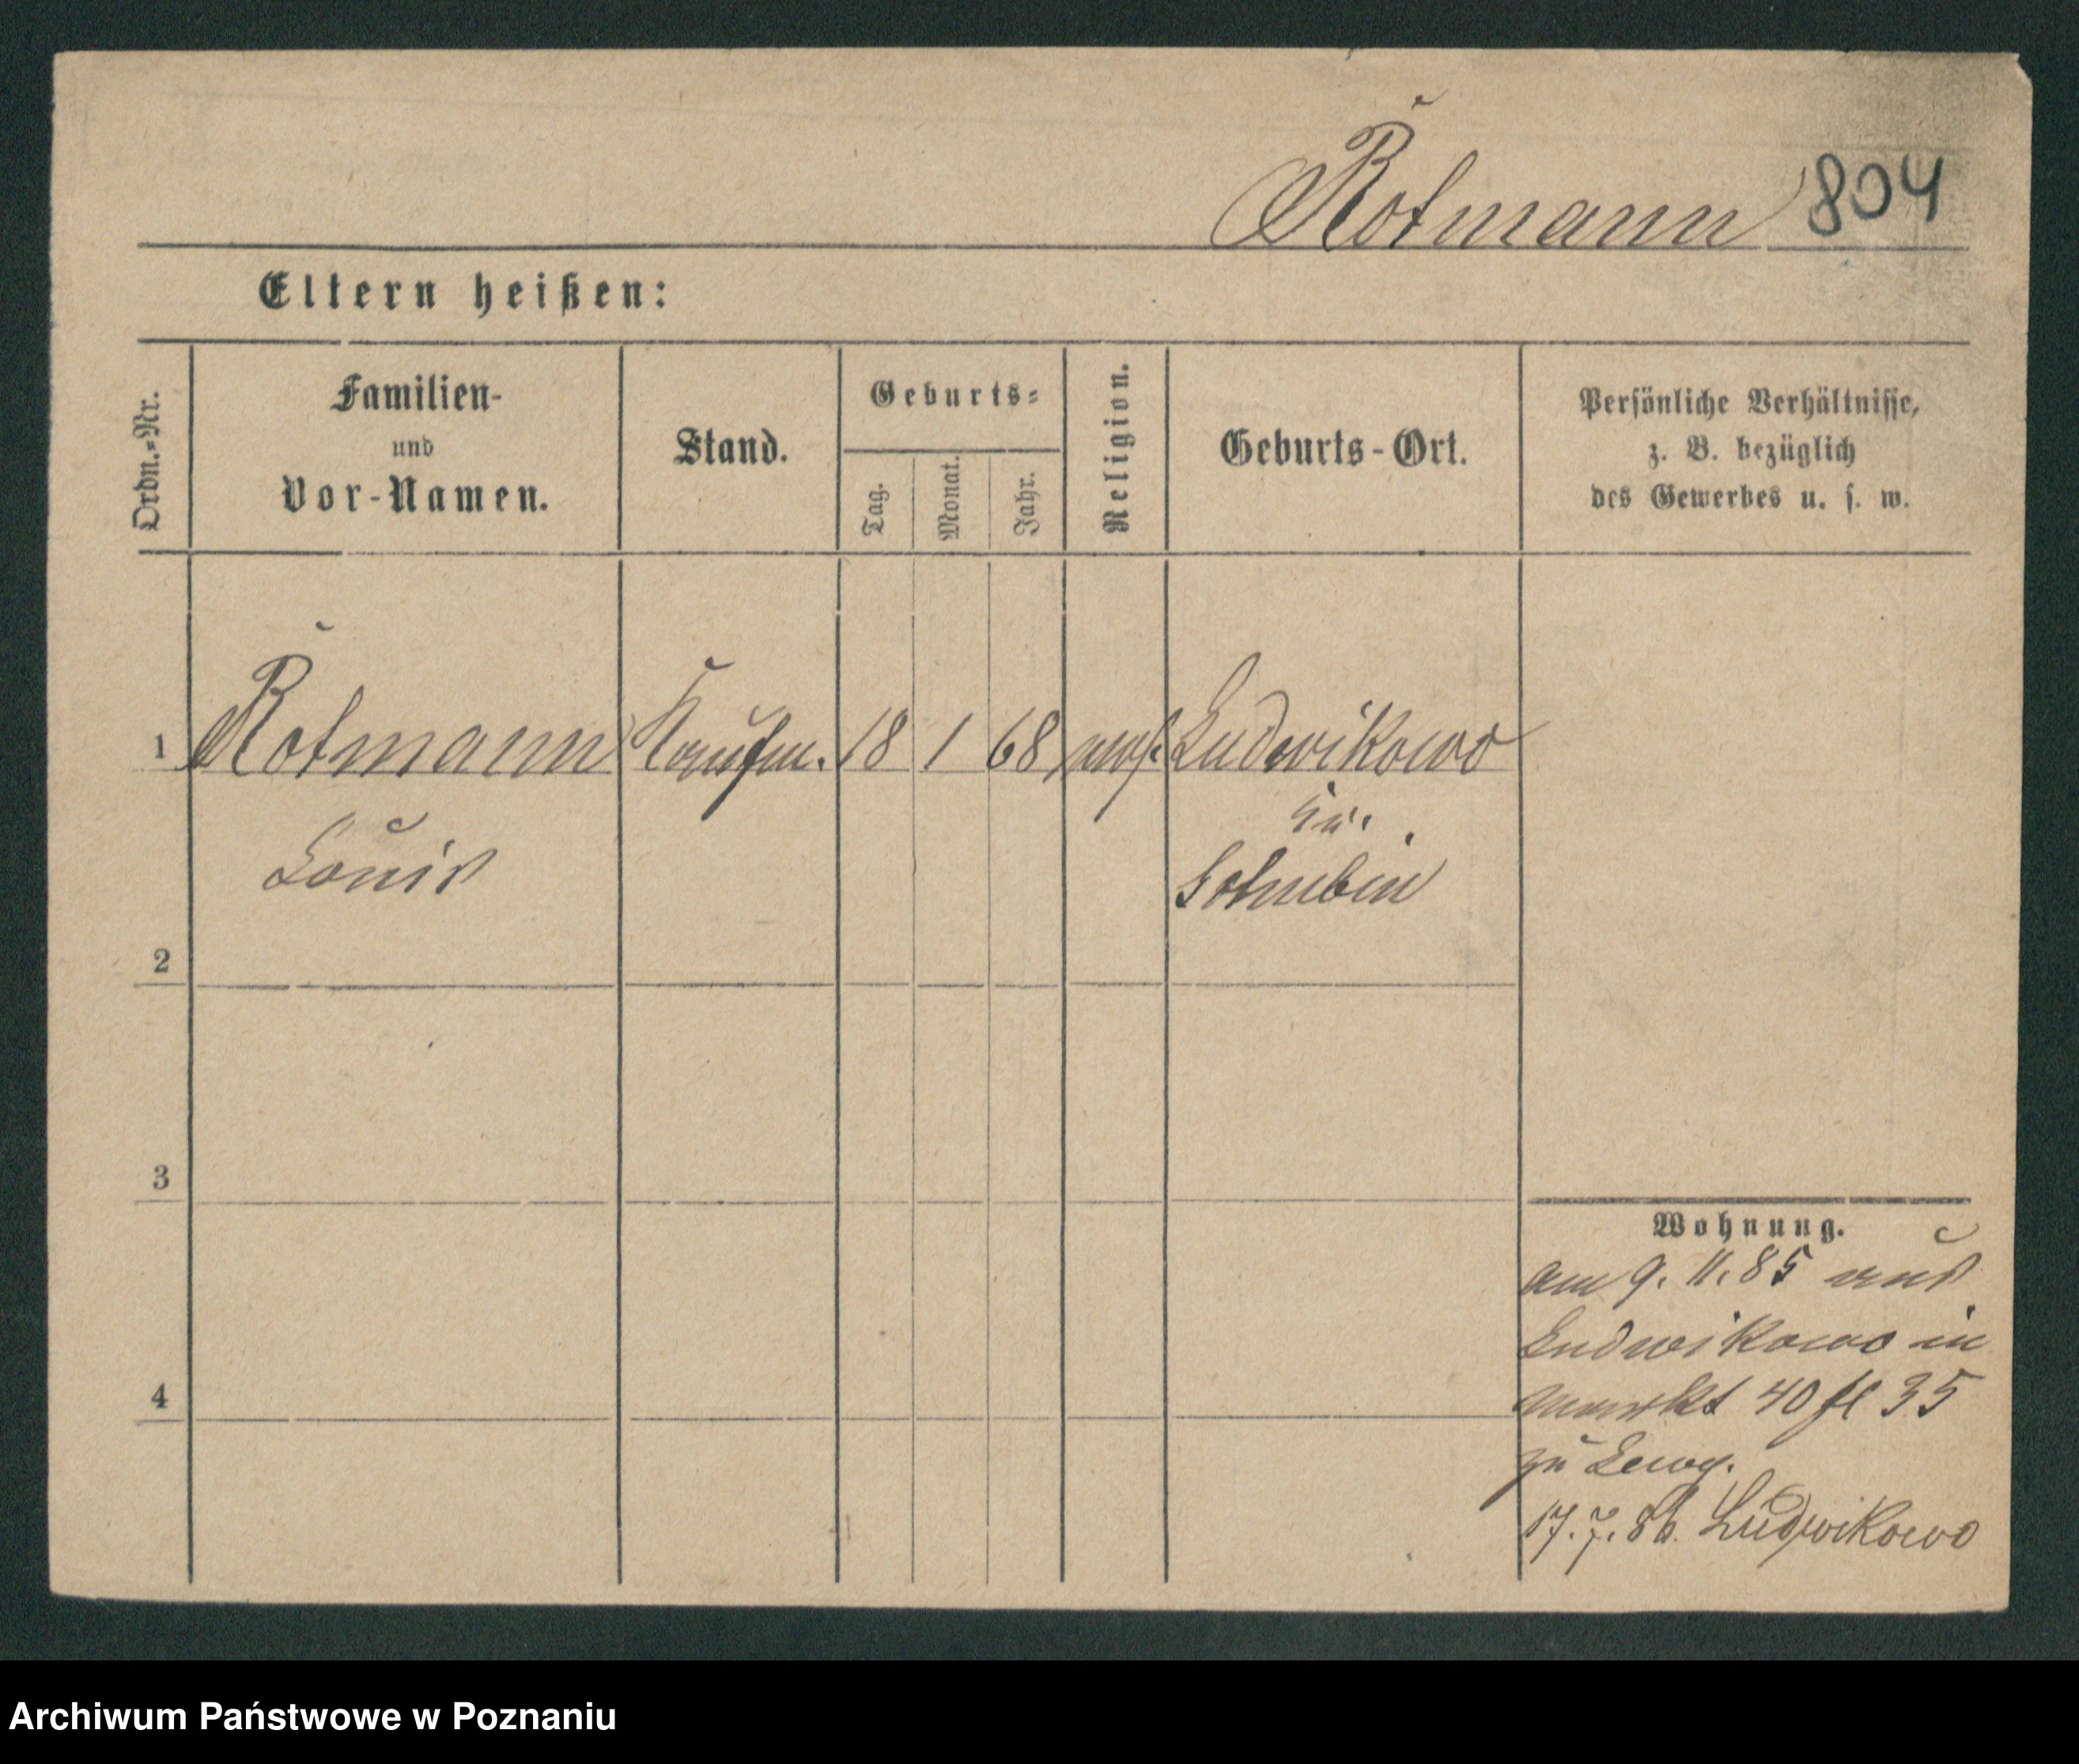 Rotmann 804
Eltern heißen:
Ordn.-Nr.
Familien-
und
Vor-Namen.
Stand.
Geburts-
Tag.
Monat.
Jahr.
Religion.
Geburts-Ort.
Persönliche Verhältnisse,
z. B. bezüglich
des Gewerbes u. s. w.
1 Rotmann Kaufm. 18 1 68 mos. Ludwikowo
Kr.
Louis Schubin
2
3
4
Wohnung.
am 9. 11. 85 aus
Ludwikowo in
Markt 40 fl 35
zu
17. 7. 86. Ludwikowo
Archiwum Państwowe w Poznaniu